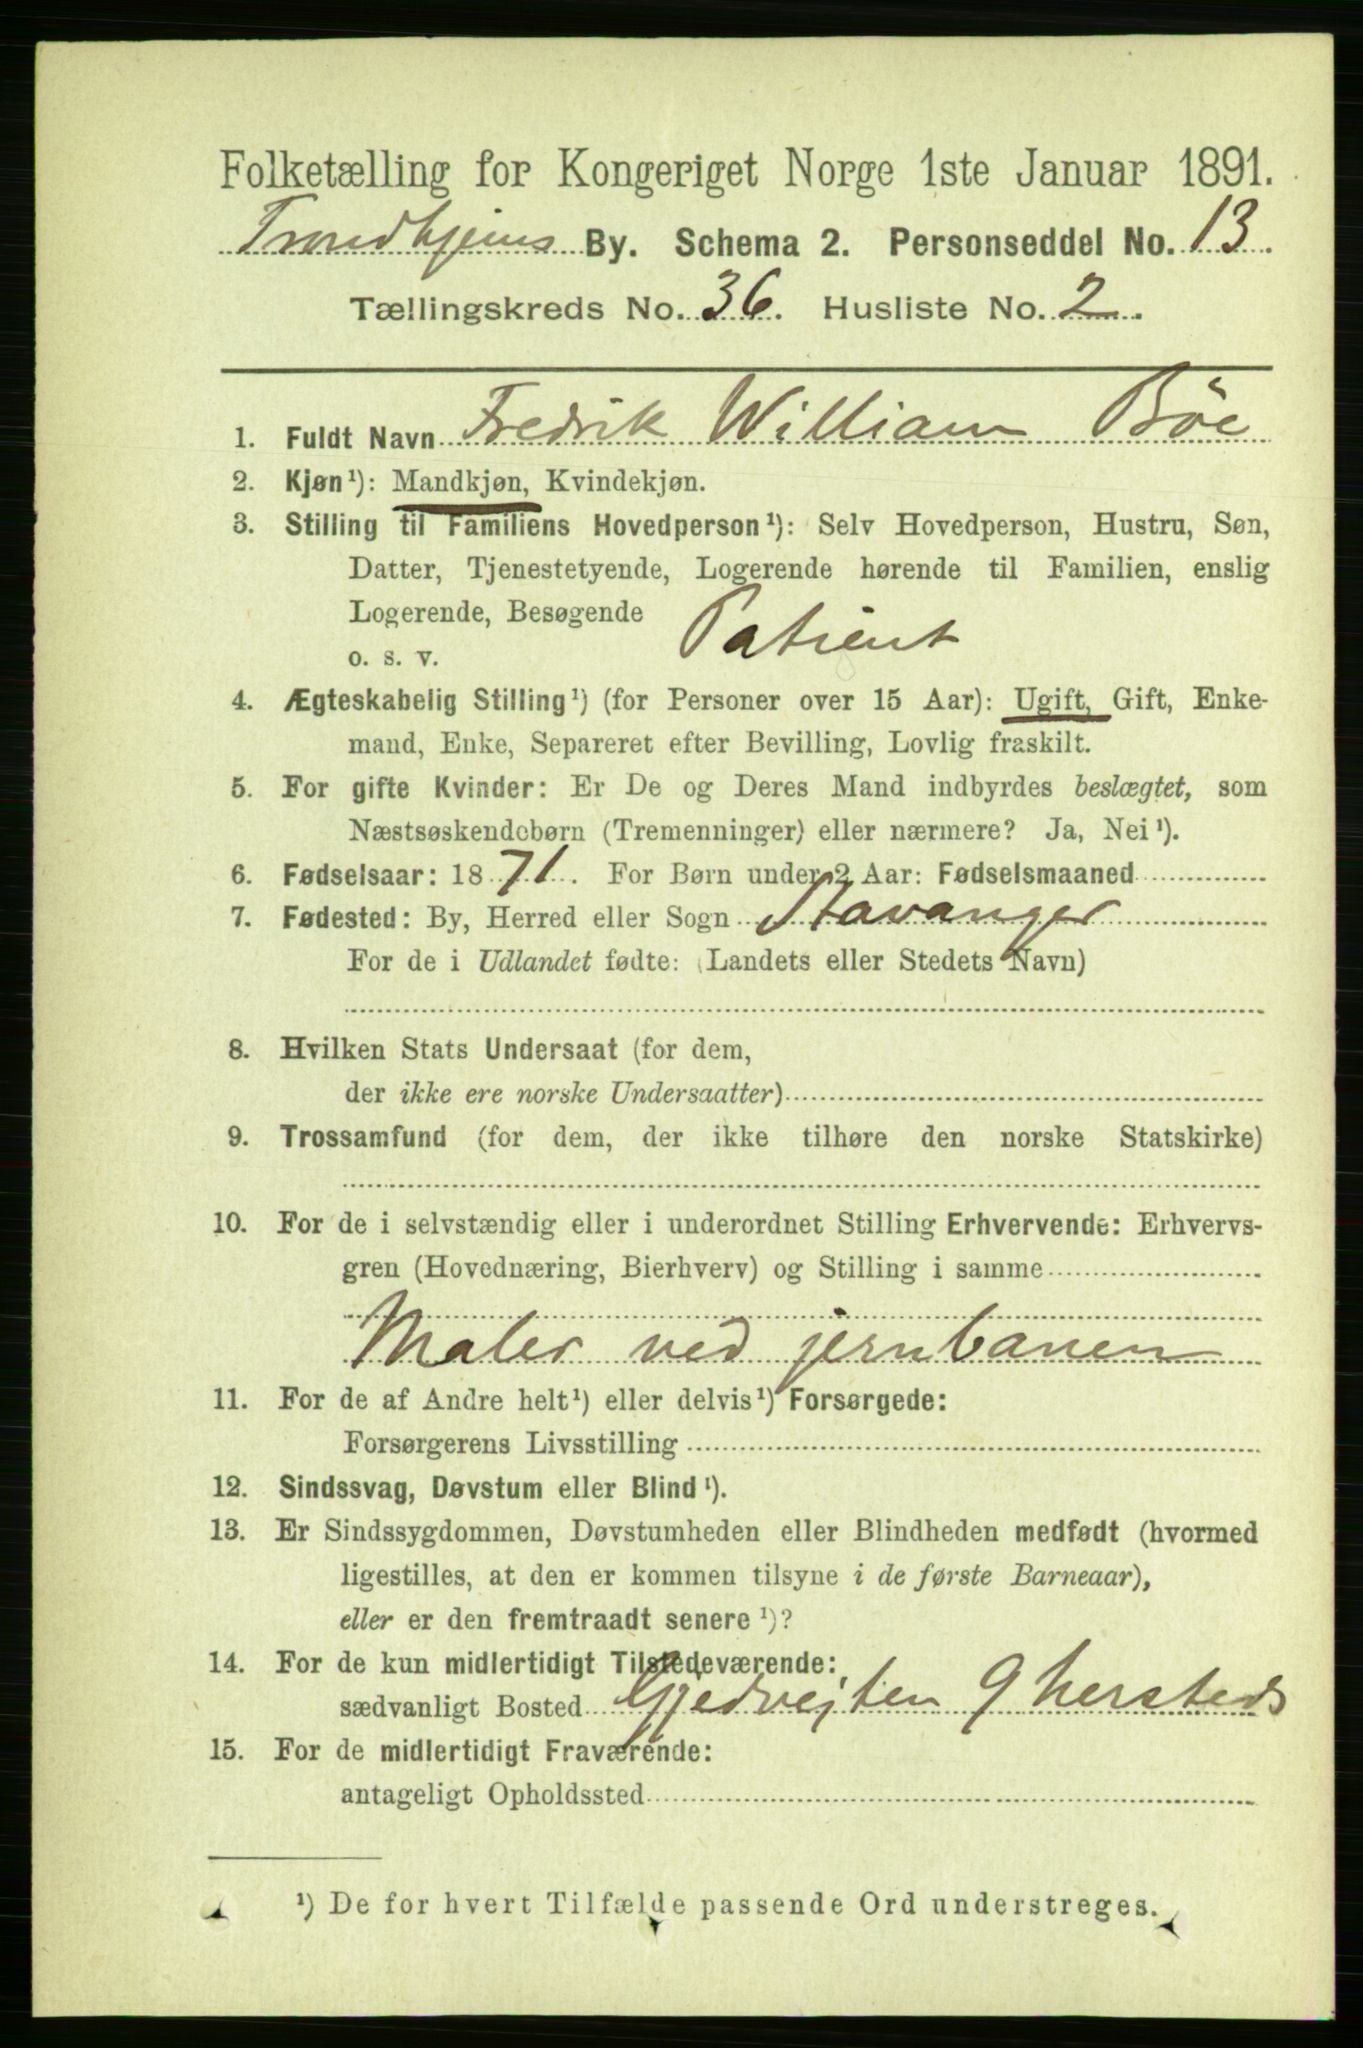 Folketælling for Kongeriget Norge 1ste Januar 1891.
Trondhjems By. Schema 2. Personseddel No. 13.
Tællingskreds No. 36. Husliste No. 2.
1. Fuldt Navn Fredrik William Böe
2. Kjøn¹): Mandkjøn, Kvindekjøn.
3. Stilling til Familiens Hovedperson¹): Selv Hovedperson, Hustru, Søn,
Datter, Tjenestetyende, Logerende hørende til Familien, enslig
Logerende, Besøgende
o. s. v. Patient
4. Ægteskabelig Stilling¹) (for Personer over 15 Aar): Ugift, Gift, Enke-
mand, Enke, Separeret efter Bevilling, Lovlig fraskilt.
5. For gifte Kvinder: Er De og Deres Mand indbyrdes beslægtet, som
Næstsøskendebørn (Tremenninger) eller nærmere? Ja, Nei¹).
6. Fødselsaar: 1871. For Børn under 2 Aar: Fødselsmaaned
7. Fødested: By, Herred eller Sogn Stavanger
For de i Udlandet fødte: (Landets eller Stedets Navn)
8. Hvilken Stats Undersaat (for dem,
der ikke ere norske Undersaatter)
9. Trossamfund (for dem, der ikke tilhøre den norske Statskirke)
10. For de i selvstændig eller i underordnet Stilling Erhvervende: Erhvervs-
gren (Hovednæring, Bierhverv) og Stilling i samme
Maler ved jernbanen
11. For de af Andre helt¹) eller delvis¹) Forsørgede:
Forsørgerens Livsstilling
12. Sindssvag, Døvstum eller Blind¹).
13. Er Sindssygdommen, Døvstumheden eller Blindheden medfødt (hvormed
ligestilles, at den er kommen tilsyne i de første Barneaar),
eller er den fremtraadt senere¹)?
14. For de kun midlertidigt Tilstedeværende:
sædvanligt Bosted
15. For de midlertidigt Fraværende:
antageligt Opholdssted
¹) De for hvert Tilfælde passende Ord understreges.